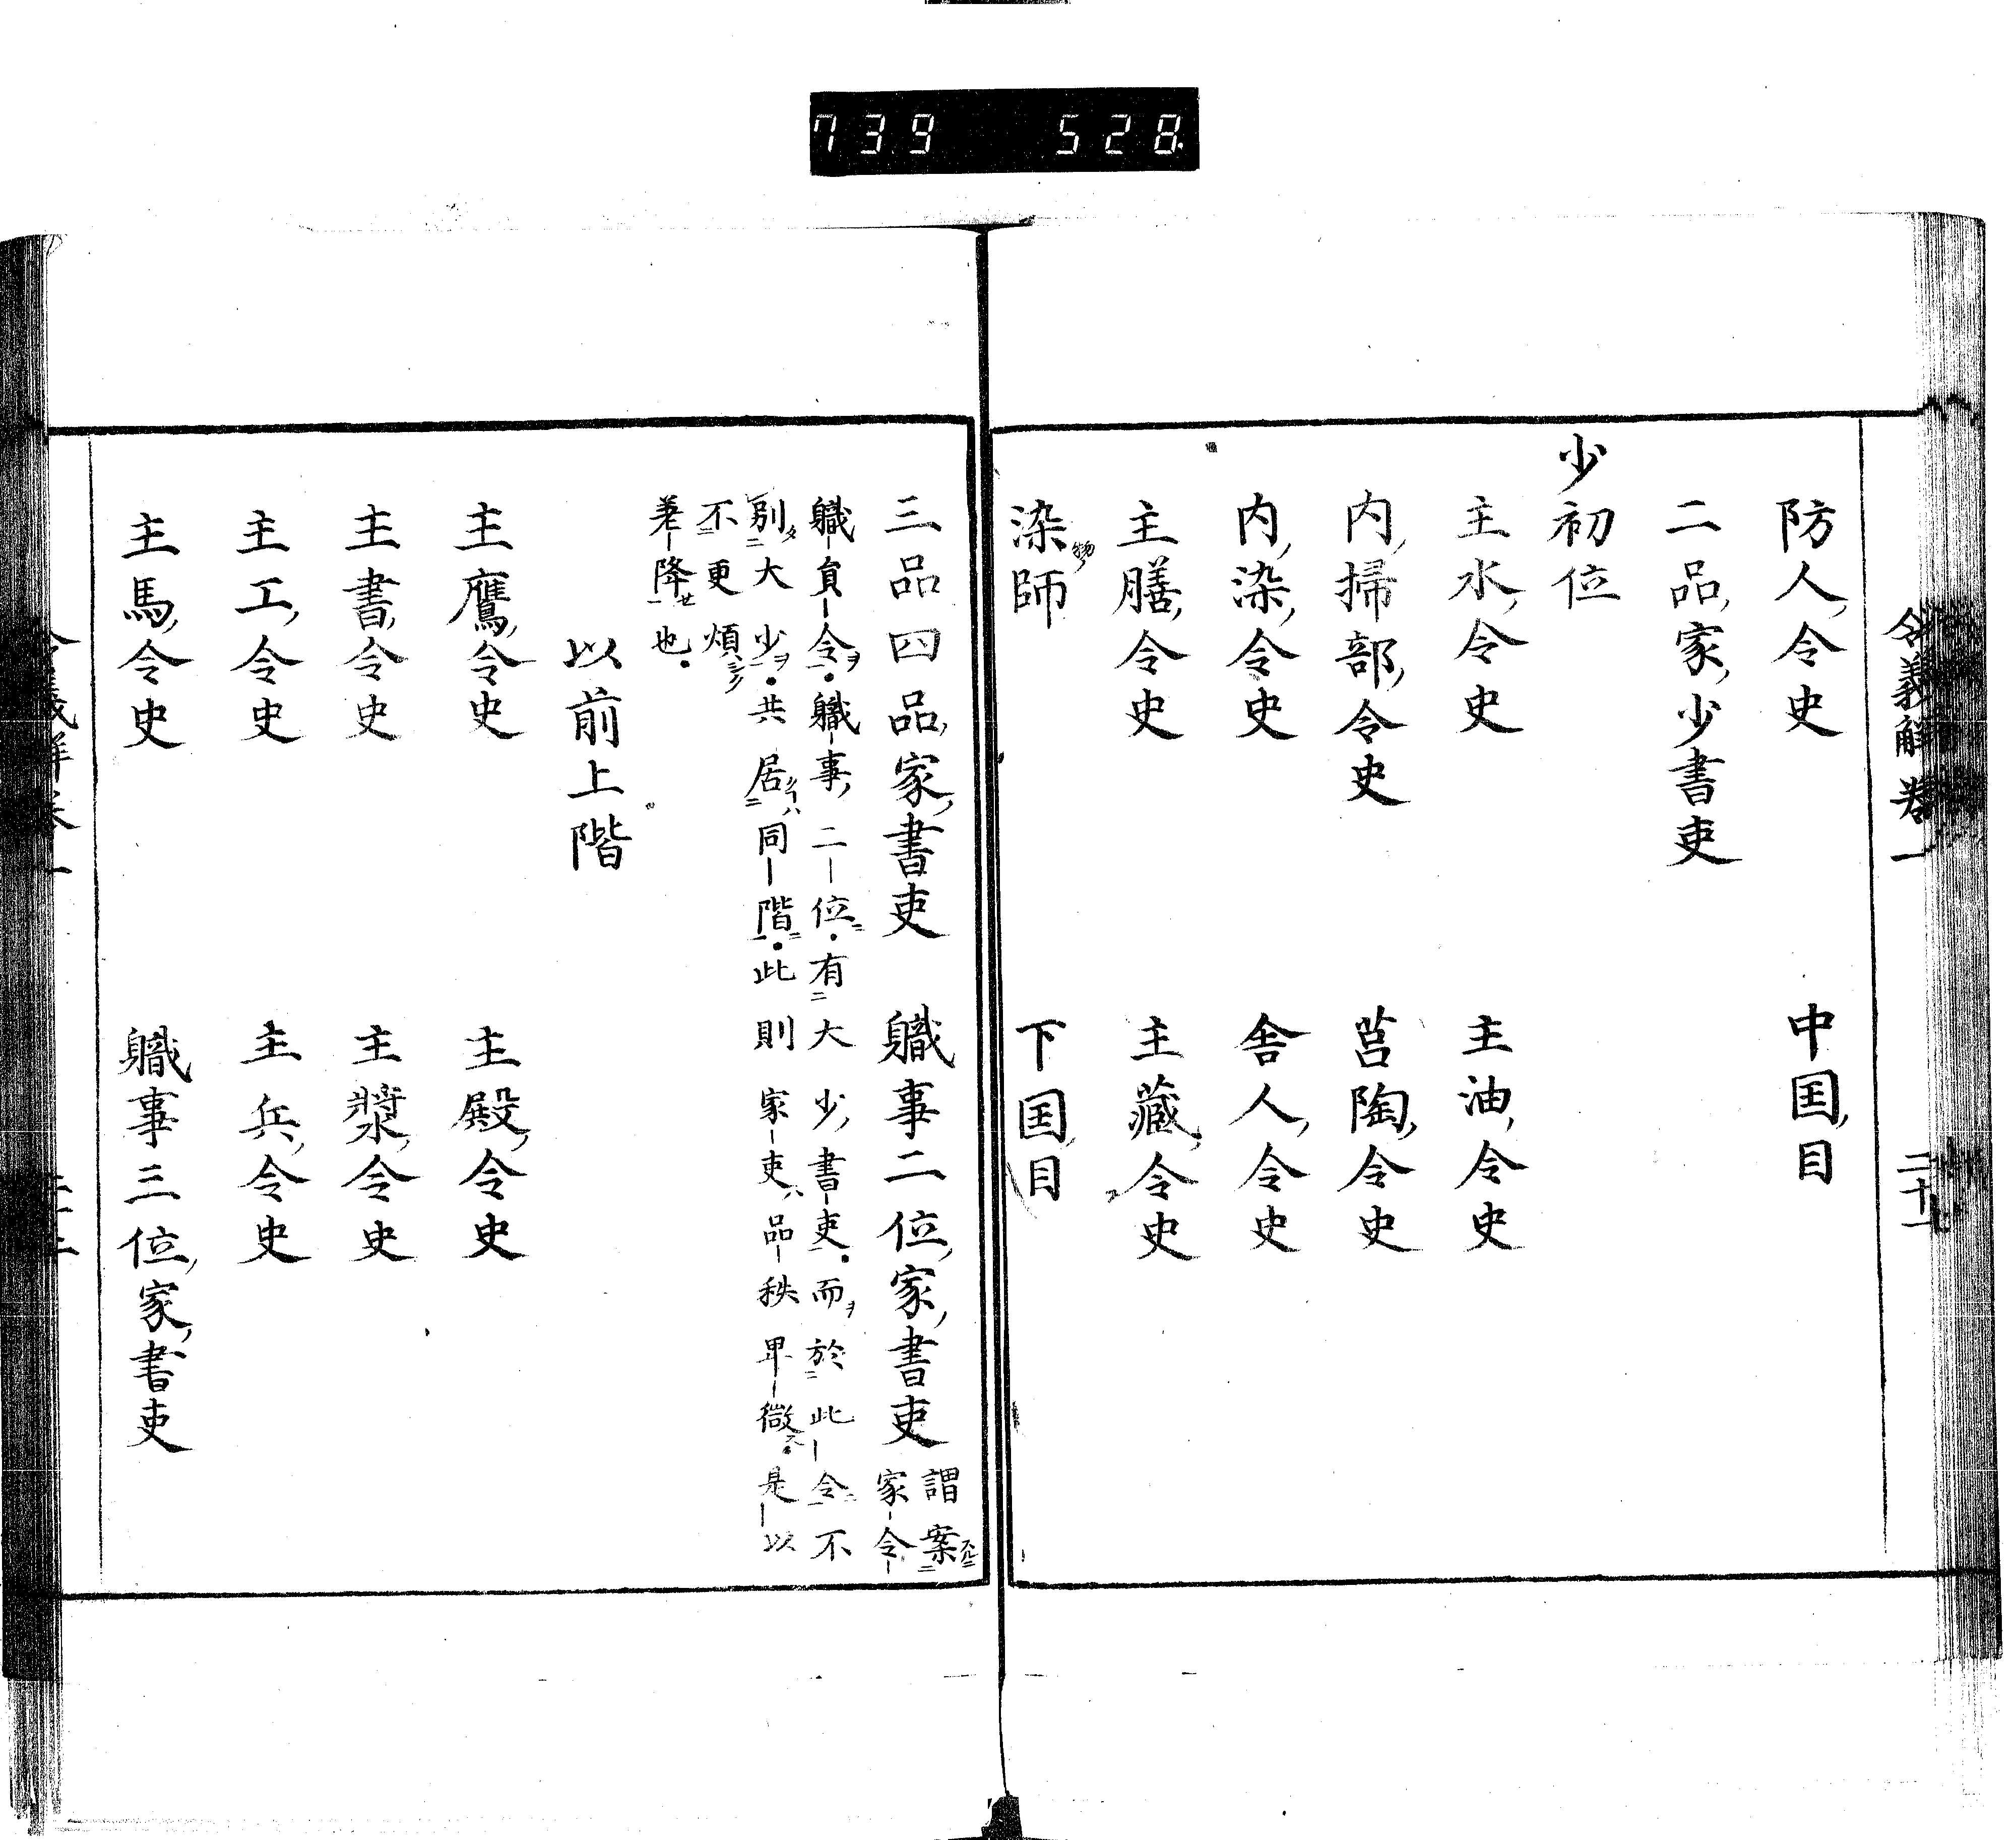 739 528
令義解卷一 二十一
防人令史 中国目
二品家少書吏
少初位
主水令史 主油令史
内掃部令史 莒陶令史
内染令史 舎人令史
主膳令史 主藏令史
染師 下国目
三品四品家書吏 軄事二位家書吏 謂案
家令
軄員令軄事二位有大少書吏而於此令不
別大少共居同階此則家吏品秩卑微是以
不更煩
差降也
以前上階
主鷹令史 主殿令史
主書令史 主漿令史
主工令史 主兵令史
主馬令史 軄事三位家書吏